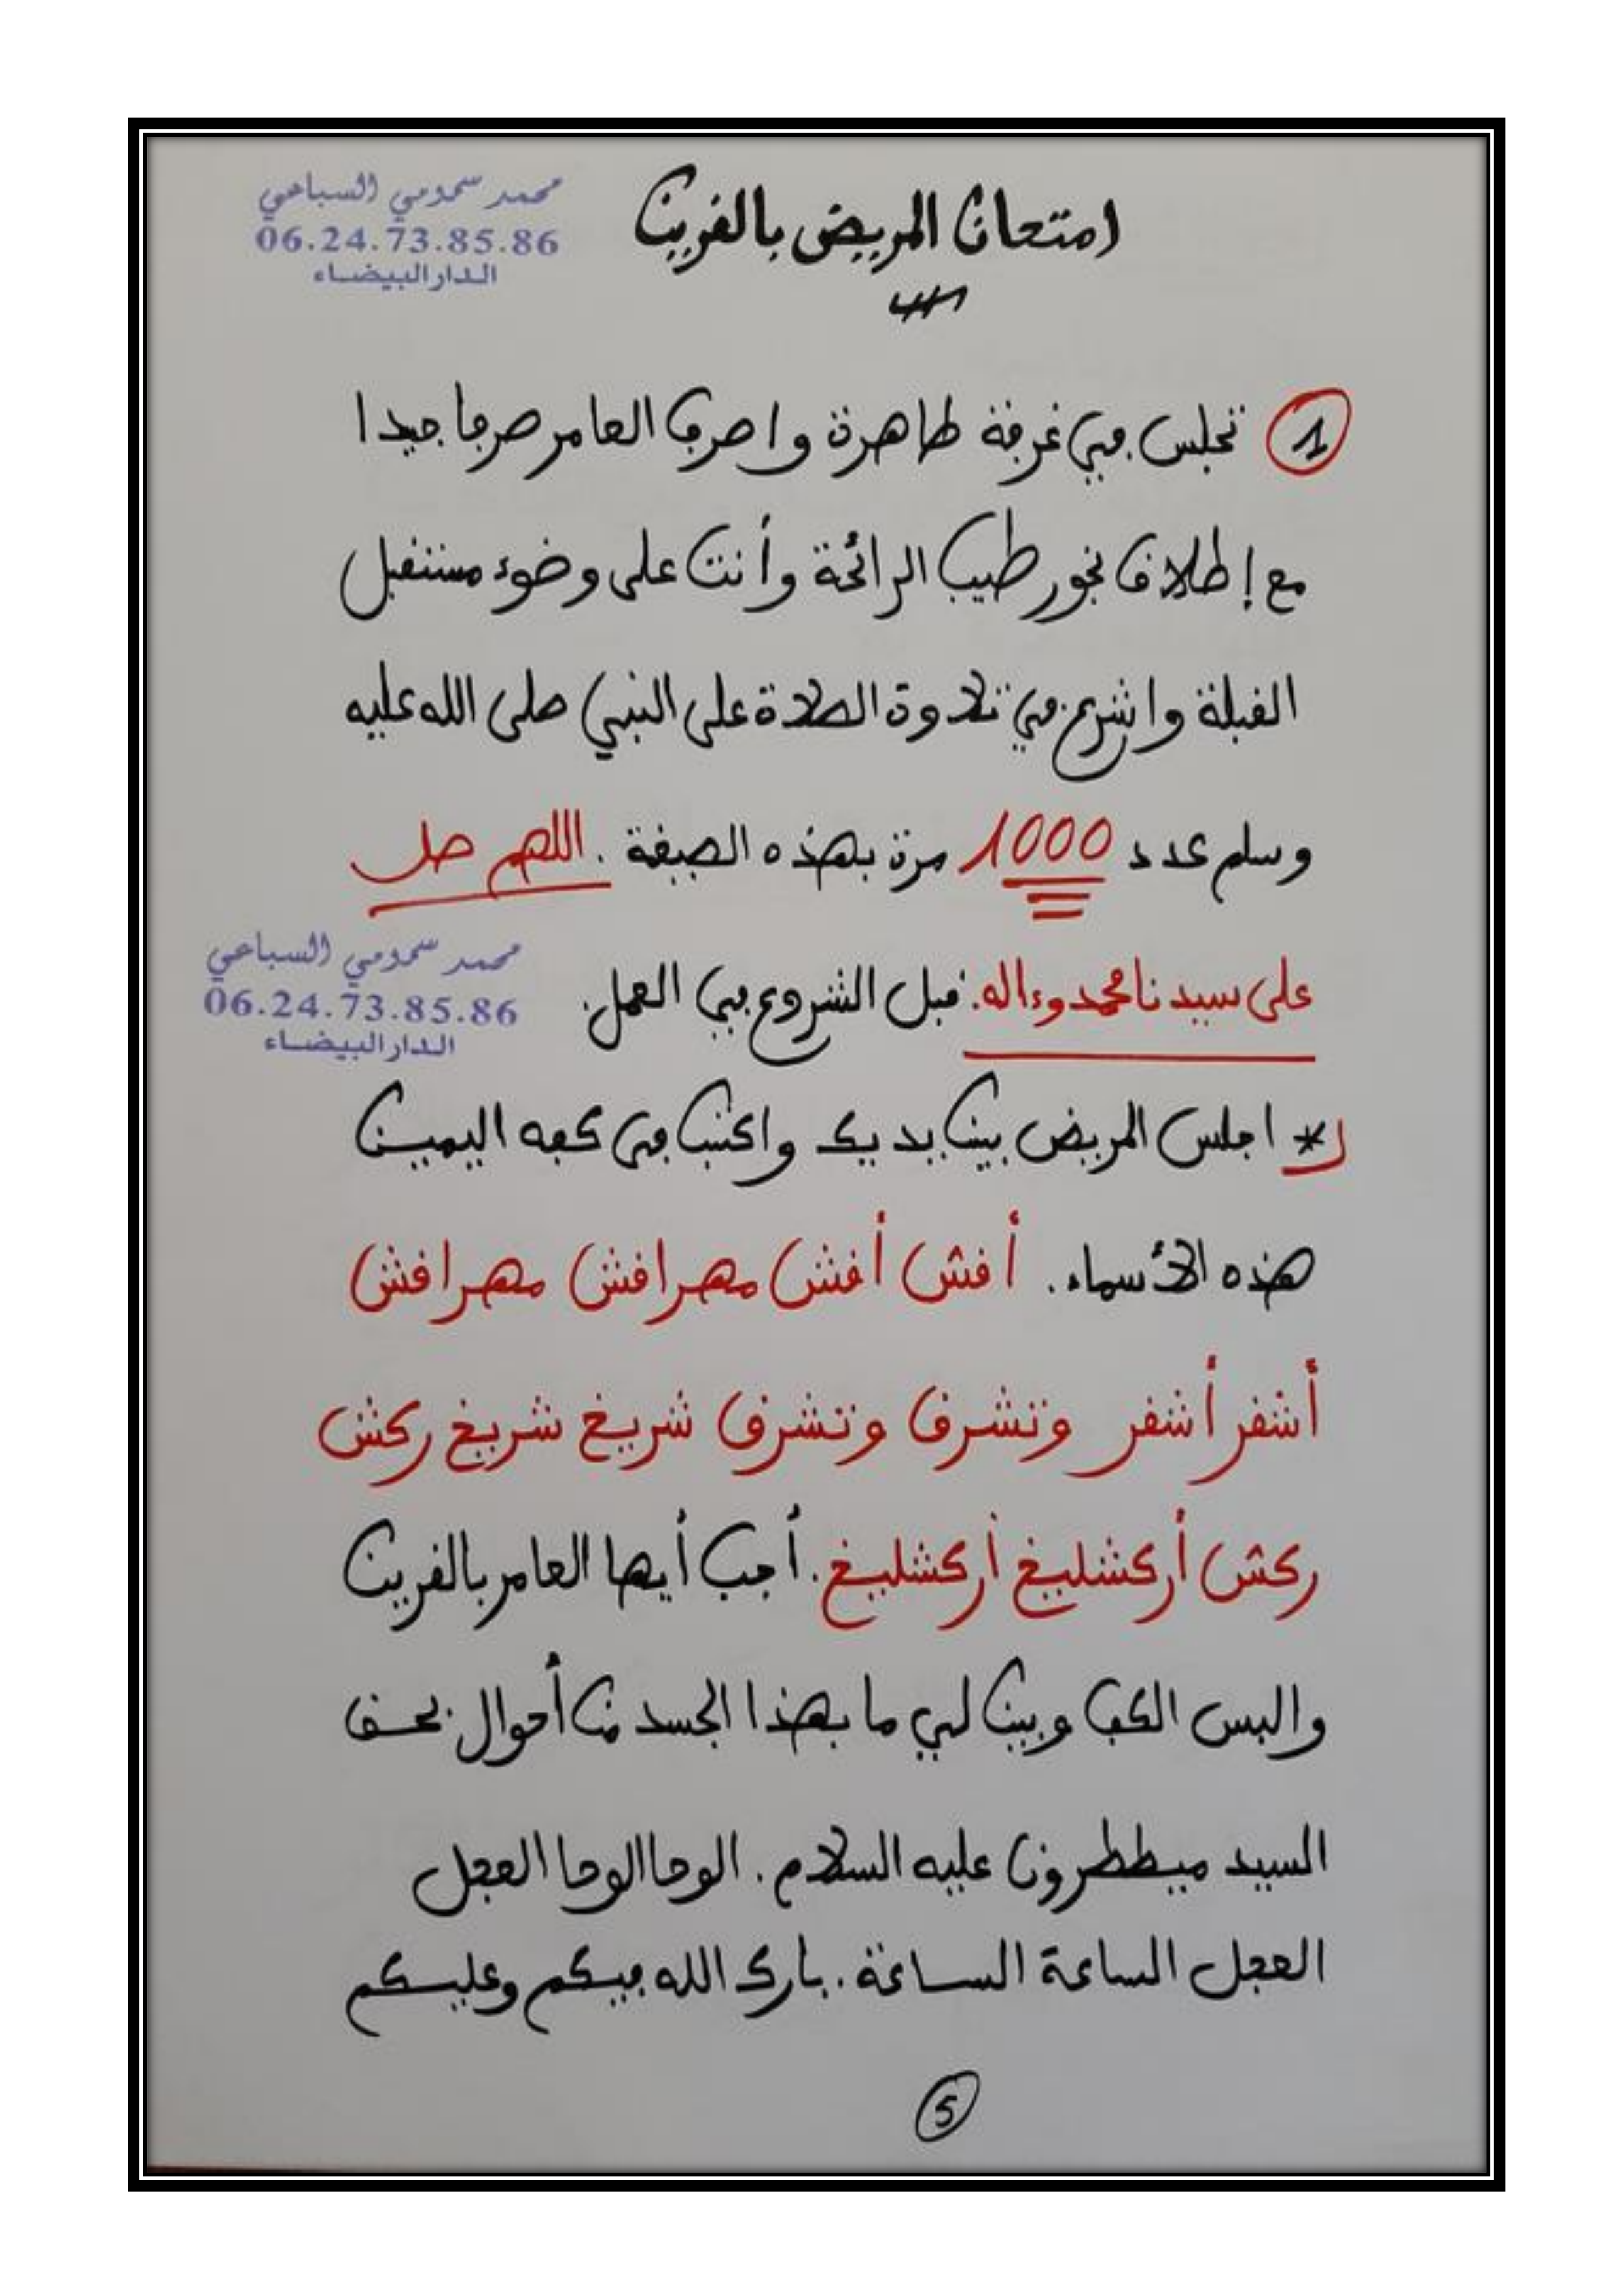 محمد سمومي السباعي
06.24.73.85.86
الدار البيضاء
امتحان المريض بالقرين
1 تجلس في غرفة طاهرة واصرف العامر صرفا جيدا
مع إطلاق بخور طيب الرائحة وأنت على وضوء مستقبل
القبلة واشرع في تلاوة الصلاة على النبي صلى الله عليه
وسلم عدد 1000 مرة بهذه الصيغة . اللهم صل
على سيدنا محمد وءاله. قبل الشروع في العمل.
محمد سمومي السباعي
06.24.73.85.86
الدار البيضاء
* اجلس المريض بين يديك واكتب في كفه اليمين
هذه الأسماء. أقش أقش مهراقش مهراقش
أشقر أشقر وتشرق وتشرق شريغ شريغ ركش
ركش أركشليغ أركشليغ. أجب أيها العامر بالقرين
والبس الكف وبين لي ما بهذا الجسد من أحوال بحق
السيد ميططرون عليه السلام. الوحا الوحا العجل
العجل الساعة الساعة. بارك الله فيكم وعليكم
5